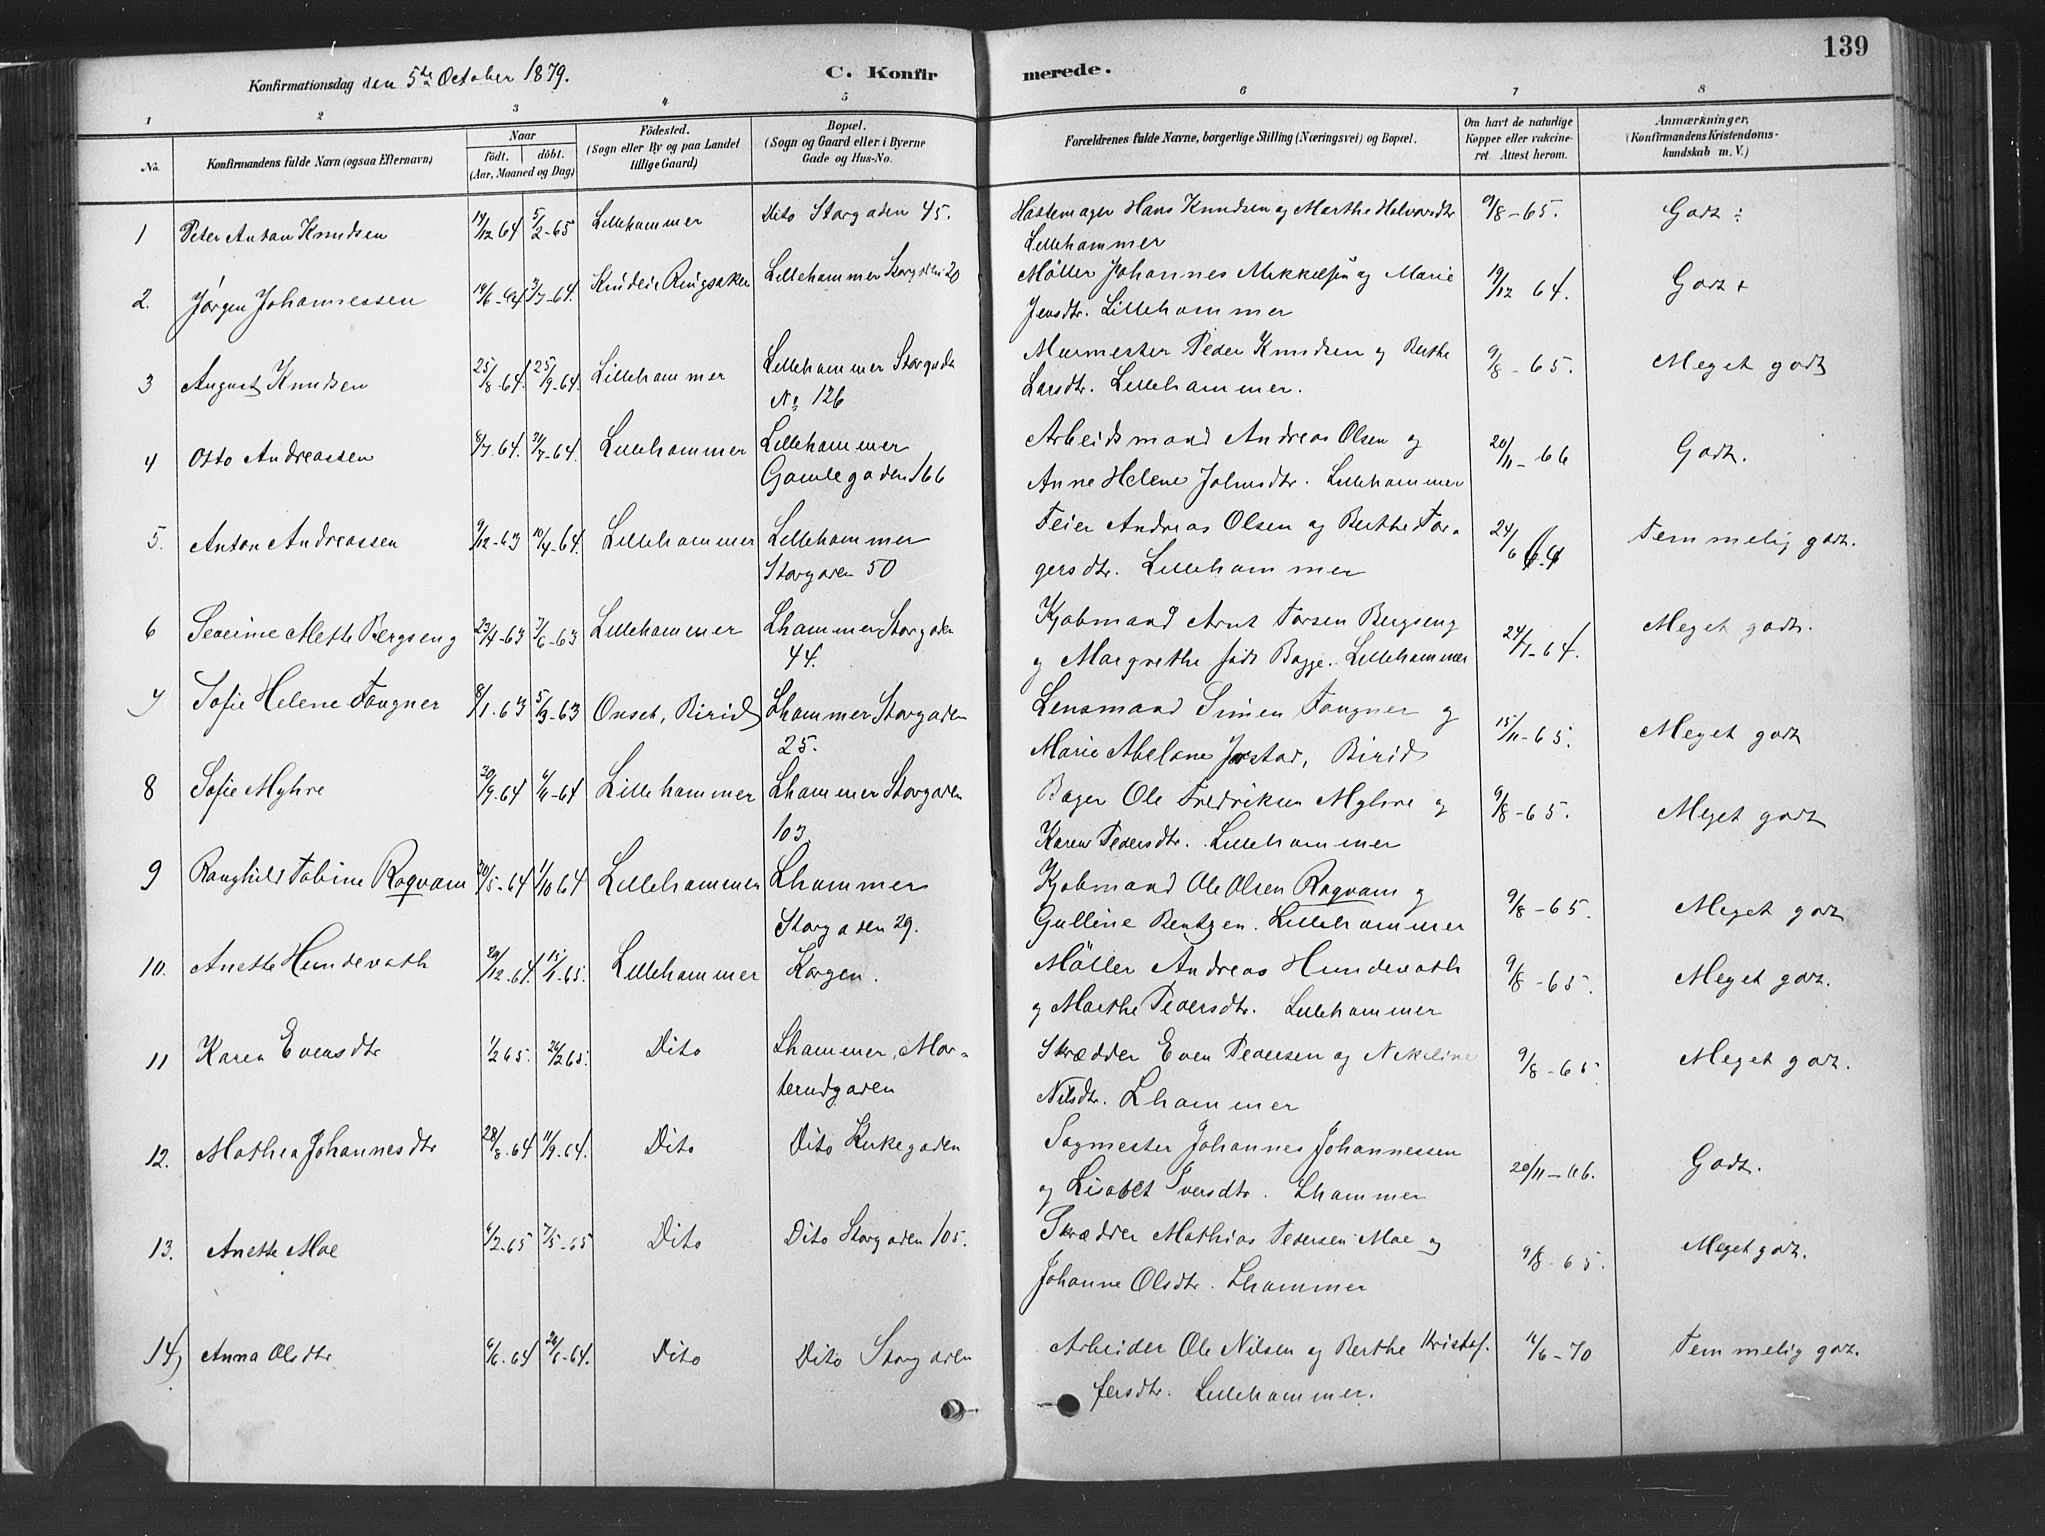 139
Konfirmationsdag den 5te October 1879. C. Konfirmerede.
1 2 3 4 5 6 7 8
No. Konfirmandens fulde Navn (ogsaa Efternavn) Naar födt. döbt. (Aar, Maaned og Dag) Födested. (Sogn eller By og paa Landet tillige Gaard) Bopæl. (Sogn og Gaard eller i Byerne Gade og Hus-No. Forældrenes fulde Navne, borgerlige Stilling (Næringsvei) og Bopæl. Om havt de naturlige Kopper eller vakcineret. Attest herom. Anmærkninger, (Konfirmandens Kristendomskundskab m. V.)
1 Peter Anton Knudsen 14/12 64 5/2-65 Lillehammer Dito Storgaden 45. Hattemager Hans Knudsen og Marthe Halvorsdtr 9/8-65. Godt ÷
Lillehammer
2. Jörgen Johannessen 14/6-64 3/7-64. Ringsaker Lillehammer Storgaden 20 Möller Johannes Mikkelsen og Marie 19/12 64. Godt +
Jensdtr. Lillehammer
3 August Knudsen 25/8-64. 25/9-64. Lillehammer Lillehammer Storgade Murmester Peder Knudsen og Berthe 9/8-65. Meget godt
No 126 Larsdtr. Lillehammer.
4 Otto Andreassen 8/7.64. 31/7-64. Lillehammer Lillehammer Arbeidsmand Andreas Olsen og 20/11-66 Godt.
Gamlegaden 166 Anne Helene Johnsdtr. Lillehammer
5. Anton Andreassen 9/12-63 10/4-64. Lillehammer Lillehammer Feier Andreas Olsen og Berthe Tor- 24/6 64 Temmelig godt.
Storgaden 50 gersdtr. Lillehammer
6 Severine Mette Bergseng 23/4-63 7/6-63 Lillehammer Lhammer Storgaden Kjöbmand Arnt Torsen Bergseng 24/1-64. Meget godt.
44. og Margrethe födt Bagge. Lillehammer
7 Sofie Helene Fougner 8/1.63 5/3-63 Onset, Birid Lhammer Storgaden Lensmand Simen Fougner og 15/11-65. Meget godt
25. Marie Abelone Jostad, Birid
8 Sofie Myhre 30/9.64 6/11-64 Lillehammer Lhammer Storgaden Bager Ole Fredriksen Myhre og 9/8-65. Meget godt
103. Karen Pedersdtr. Lillehammer
9 Ranghild Tobine Rogvam 30/5-64 1/10 64 Lillehammer Lhammer Kjöbmand Ole Olsen Rogvam og 9/8-65. Meget godt
Storgaden 29. Gulline Bentzen. Lillehammer
10. Anette Hundevath 29/12-64. 15/1-65. Lillehammer Korgen. Möller Andreas Hundevath 9/8-65. Meget godt.
og Marthe Pedersdtr. Lillehammer
11 Karen Evensdtr 1/2 65. 26/2 65. Dito Lhammer, Mor- Skrædder Even Pedersen og Nikoline 9/8-65 Meget godt.
terudgaden Nilsdtr. Lhammer
12. Mathea Johannesdtr 28/8.64 11/9.64. Dito Dito Kirkegaden Sagmester Johannes Johannessen 20/11-66. Godt.
og Lisabet Iversdtr. Lhammer
13. Anette Moe 6/2-65 7/5-65 Dito Dito Storgaden 105. Skrædder Mathias Pedersen Moe og 9/8-65. Meget godt.
Johanne Olsdtr. Lhammer
14) Anna Olsdtr 6/6-64 26/6-64. Dito Dito Storgaden Arbeider Ole Nilsen og Berthe Kristof- 16/6-70 Temmelig godt.
fersdtr. Lillehammer.